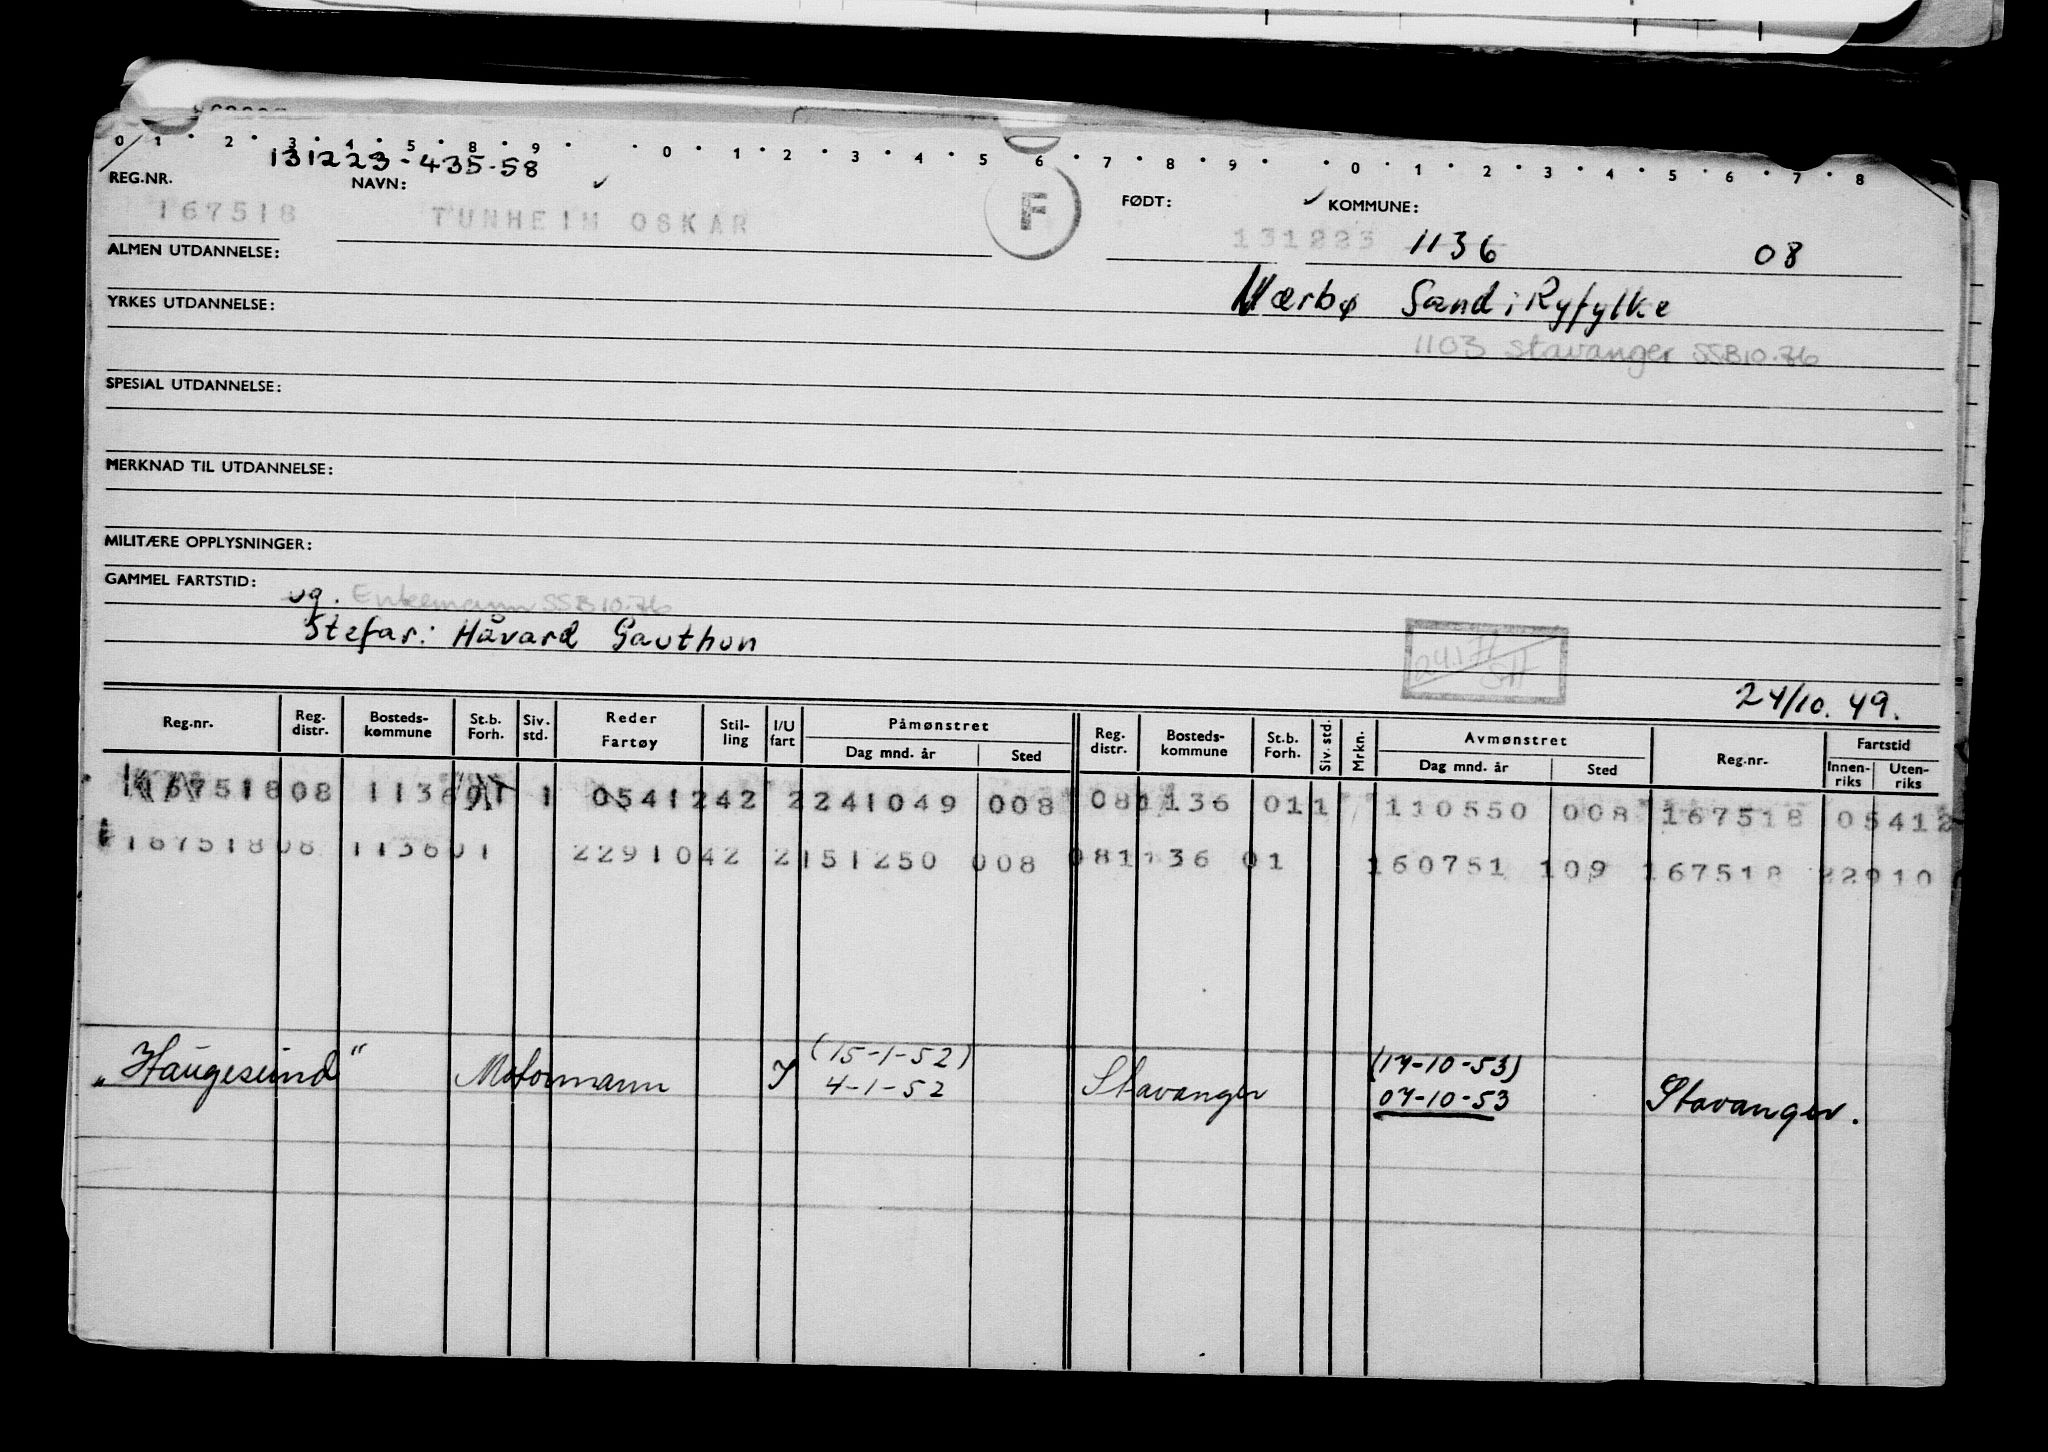 0 1 2 3 4 5 8 9 0 1 2 3 4 5 6 7 8 9 0 1 2 3 4 5 6 7 8
131223-435-58
REG.NR. NAVN: FØDT: KOMMUNE:
167518 TUNHEIM OSKAR F 131223 1136 08
ALMEN UTDANNELSE:
Mærbø Sand i Ryfylke
YRKES UTDANNELSE:
1103 Stavanger SSB10.76
SPESIAL UTDANNELSE:
MERKNAD TIL UTDANNELSE:
MILITÆRE OPPLYSNINGER:
GAMMEL FARTSTID:
ug. Enkemann SSB10.76
Stefar: Håvard Gauthun
24/10.49.
Reg.nr. Reg. distr. Bosteds- kommune St.b. Forh. Siv. std. Reder Fartøy Stil- ling I/U fart Påmønstret Reg. distr. Bosteds- kommune St.b. Forh. Siv. std. Mrkn. Avmønstret Reg.nr. Fartstid
Dag mnd. år Sted Dag mnd. år Sted Innen- riks Uten- riks
167518 08 1136 01 1 05412 42 2 241049 008 08 1136 01 1 110550 008 167518 05412
167518 08 1136 01 22910 42 2 151250 008 08 1136 01 160751 109 167518 22910
(15-1-52) (17-10-53)
„Haugesund" Motormann I 4-1-52 Stavanger 07-10-53 Stavanger.